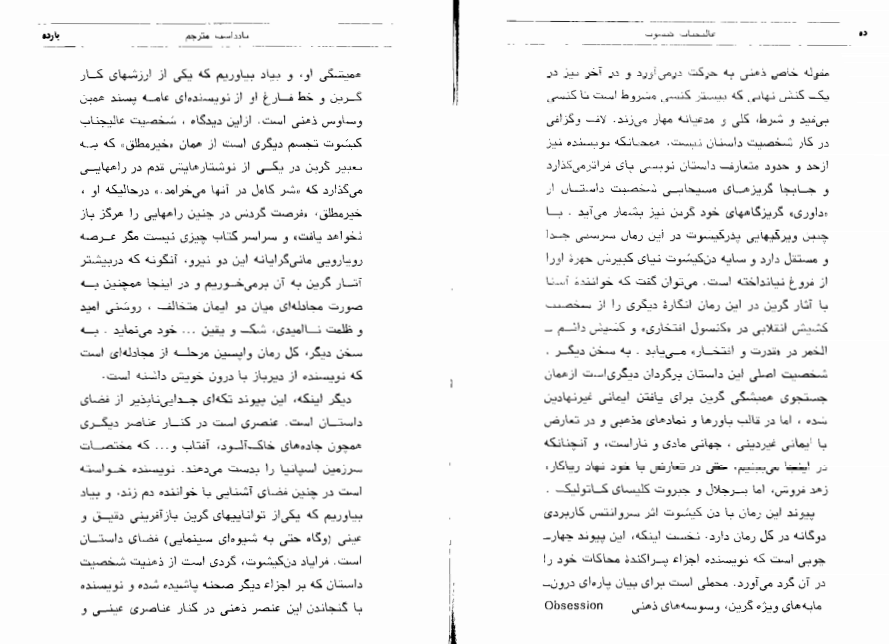 ده
عالیجناب کیشوت
مقوله خاص ذهنی به حرکت درمی‌آورد و در آخر نیز در
یک کنش نهایی که بیشتر کنسی مشروط است تا کنسی
بی‌قید و شرط، کلی و مدعیانه مهار می‌زند. لاف و گزافی
در کار شخصیت داستان نیست، همچنانکه نویسنده نیز
ازحد و حدود متعارف داستان نویسی پای فراترمی‌گذارد
و جابجا گریزهای مسیحایی شخصیت داستان از
«داوری» گریزگاههای خود گرین نیز بشمار می‌آید . با
چنین ویژگیهایی پدرکیشوت در این رمان سرشتی جدا
و مستقل دارد و سایه دن‌کیشوت نیای کبیرش چهرهٔ اورا
از فروغ نیانداخته است. می‌توان گفت که خوانندهٔ آشنا
با آثار گرین در این رمان انگارهٔ دیگری را از شخصیت
کشیش انقلابی در «کنسول افتخاری» و کشیش دائم ـ
الخمر در «قدرت و افتخار» می‌یابد . به سخن دیگر .
شخصیت اصلی این داستان برگردان دیگری‌است ازهمان
جستجوی همیشگی گرین برای یافتن ایمانی غیرنهادین
شده ، اما در قالب باورها و نمادهای مذهبی و در تعارض
با ایمانی غیردینی ، جهانی مادی و ناراست، و آنچنانکه
در اینجا می‌بینیم، حتی در تعارض با خود نهاد ریاکار،
زهد فروش، اما پرجلال و جبروت کلیسای کاتولیک .
پیوند این رمان با دن کیشوت اثر سروانتس کاربردی
دوگانه در کل رمان دارد. نخست اینکه، این پیوند چهار‌ـ
چوبی است که نویسنده اجزاء پراکندهٔ محاکات خود را
در آن گرد می‌آورد. محملی است برای بیان پاره‌ای درون‌ـ
مایه‌های ویژه گرین، وسوسه‌های ذهنی Obsession
یادداشت مترجم
یازده
همیشگی او، و بیاد بیاوریم که یکی از ارزشهای کار
گرین و خط فارغ او از نویسنده‌ای عامه پسند همین
وساوس ذهنی است. ازاین دیدگاه ، شخصیت عالیجناب
کیشوت تجسم دیگری است از همان «خیرمطلق» که به
تعبیر گرین در یکی از نوشتارهایش قدم در راههایی
می‌گذارد که «شر کامل در آنها می‌خرامد.» درحالیکه او ،
خیرمطلق، «فرصت گردش در چنین راههایی را هرگز باز
نخواهد یافت» و سراسر کتاب چیزی نیست مگر عرصه
رویارویی مانی‌گرایانه این دو نیرو، آنگونه که دربیشتر
آثار گرین به آن برمی‌خوریم و در اینجا همچنین به
صورت مجادله‌ای میان دو ایمان متخالف ، روشنی امید
و ظلمت ناامیدی، شک و یقین ... خود می‌نماید . به
سخن دیگر، کل رمان واپسین مرحله از مجادله‌ای است
که نویسنده از دیرباز با درون خویش داشته است.
دیگر اینکه، این پیوند تکه‌ای جدایی‌ناپذیر از فضای
داستان است. عنصری است در کنار عناصر دیگری
همچون جاده‌های خاک‌آلود، آفتاب و... که مختصات
سرزمین اسپانیا را بدست می‌دهند. نویسنده خواسته
است در چنین فضای آشنایی با خواننده دم زند، و بیاد
بیاوریم که یکی‌از تواناییهای گرین بازآفرینی دقیق و
عینی (وگاه حتی به شیوه‌ای سینمایی) فضای داستان
است. فرایاد دن‌کیشوت، گردی است از ذهنیت شخصیت
داستان که بر اجزاء دیگر صحنه پاشیده شده و نویسنده
با گنجاندن این عنصر ذهنی در کنار عناصری عینی و